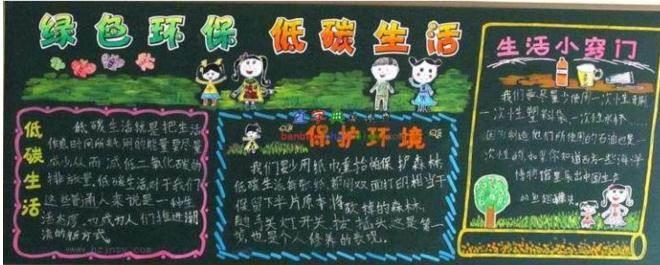 绿色环保 低碳生活
低碳生活
低碳生活就是把生活
作息时间所耗用的能量要尽量
减少从而减低二氧化碳的
排放量。低碳生活对于我们
这些普通人来说是一种生
活态度,也成为人们推进潮
流的新方式。
保护环境
我们要少用纸巾重拾帕保护森林
低碳生活每张纸都用双面打印相当于
保留下半片原本将砍掉的森林。
随手关灯开关、拔插头这是第一
步,也是个人修养的表现。
生活小窍门
我们要尽量少使用一次性牙刷
一次性塑料袋一次性水杯
因为制造他们所使用的石油也是
一次性的
海洋
博物馆